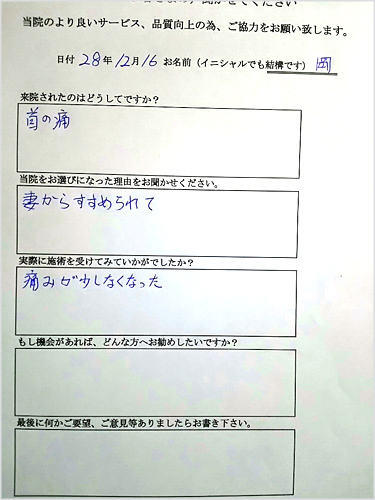 聞かせてください
当院のより良いサービス、品質向上の為、ご協力をお願い致します。
日付 28年12月16 お名前(イニシャルでも結構です) 岡
来院されたのはどうしてですか?
首の痛
当院をお選びになった理由をお聞かせください。
妻からすすめられて
実際に施術を受けてみていかがでしたか?
痛みが少しなくなった
もし機会があれば、どんな方へお勧めしたいですか?
最後に何かご要望、ご意見等ありましたらお書き下さい。